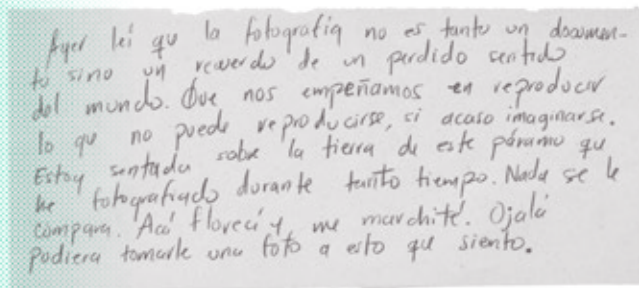 Ayer leí qu la fotografía no es tanto un documen-
to sino un recuerdo de un perdido sentido
del mundo. Que nos empeñamos en reproducir
lo qu no puede reproducirse, si acaso imaginarse.
Estoy sentada sobre la tierra de este páramo qu
he fotografiado durante tanto tiempo. Nada se le
compara. Acá florecí y me marchité. Ojalá
pudiera tomarle una foto a esto qu siento.